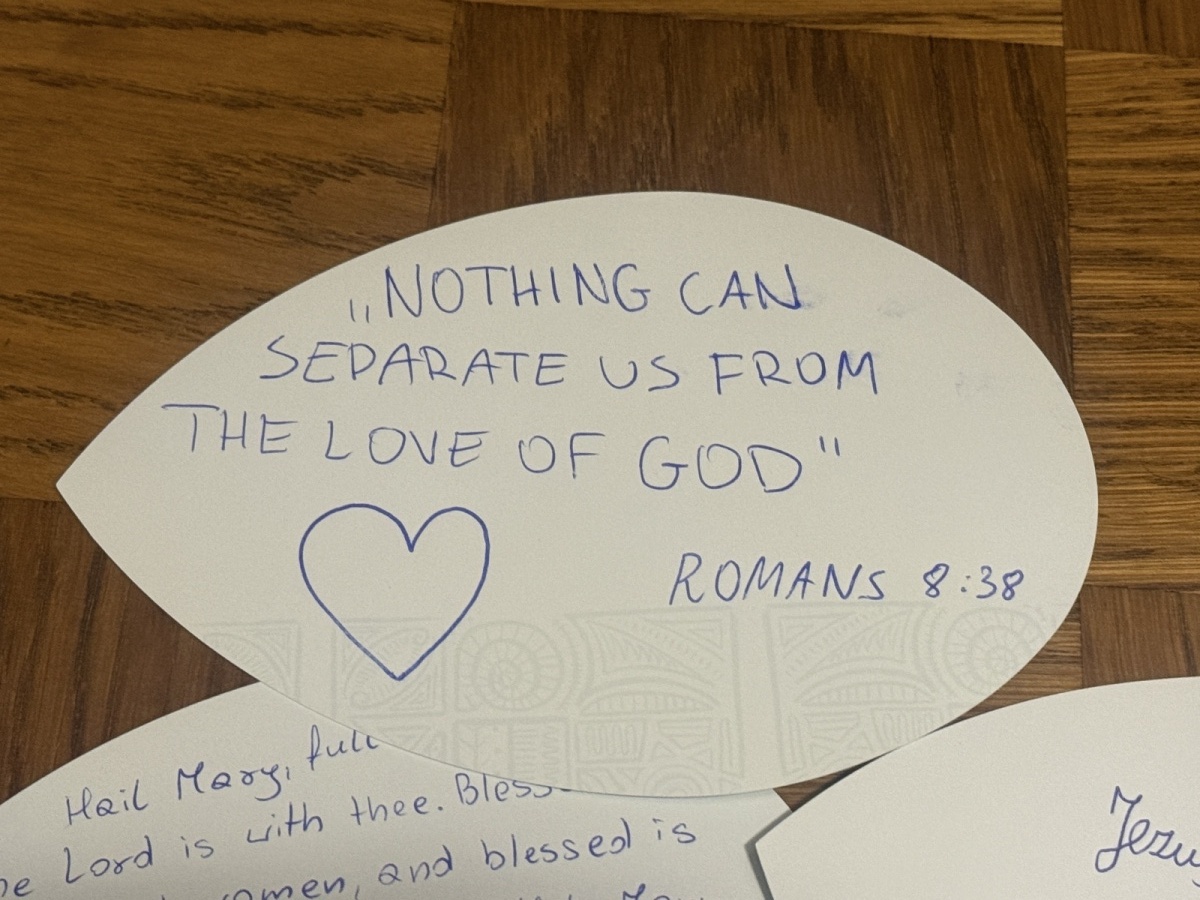 „NOTHING CAN
SEPARATE US FROM
THE LOVE OF GOD"
ROMANS 8:38
Hail Mary, full
Lord is with thee.
and blessed is